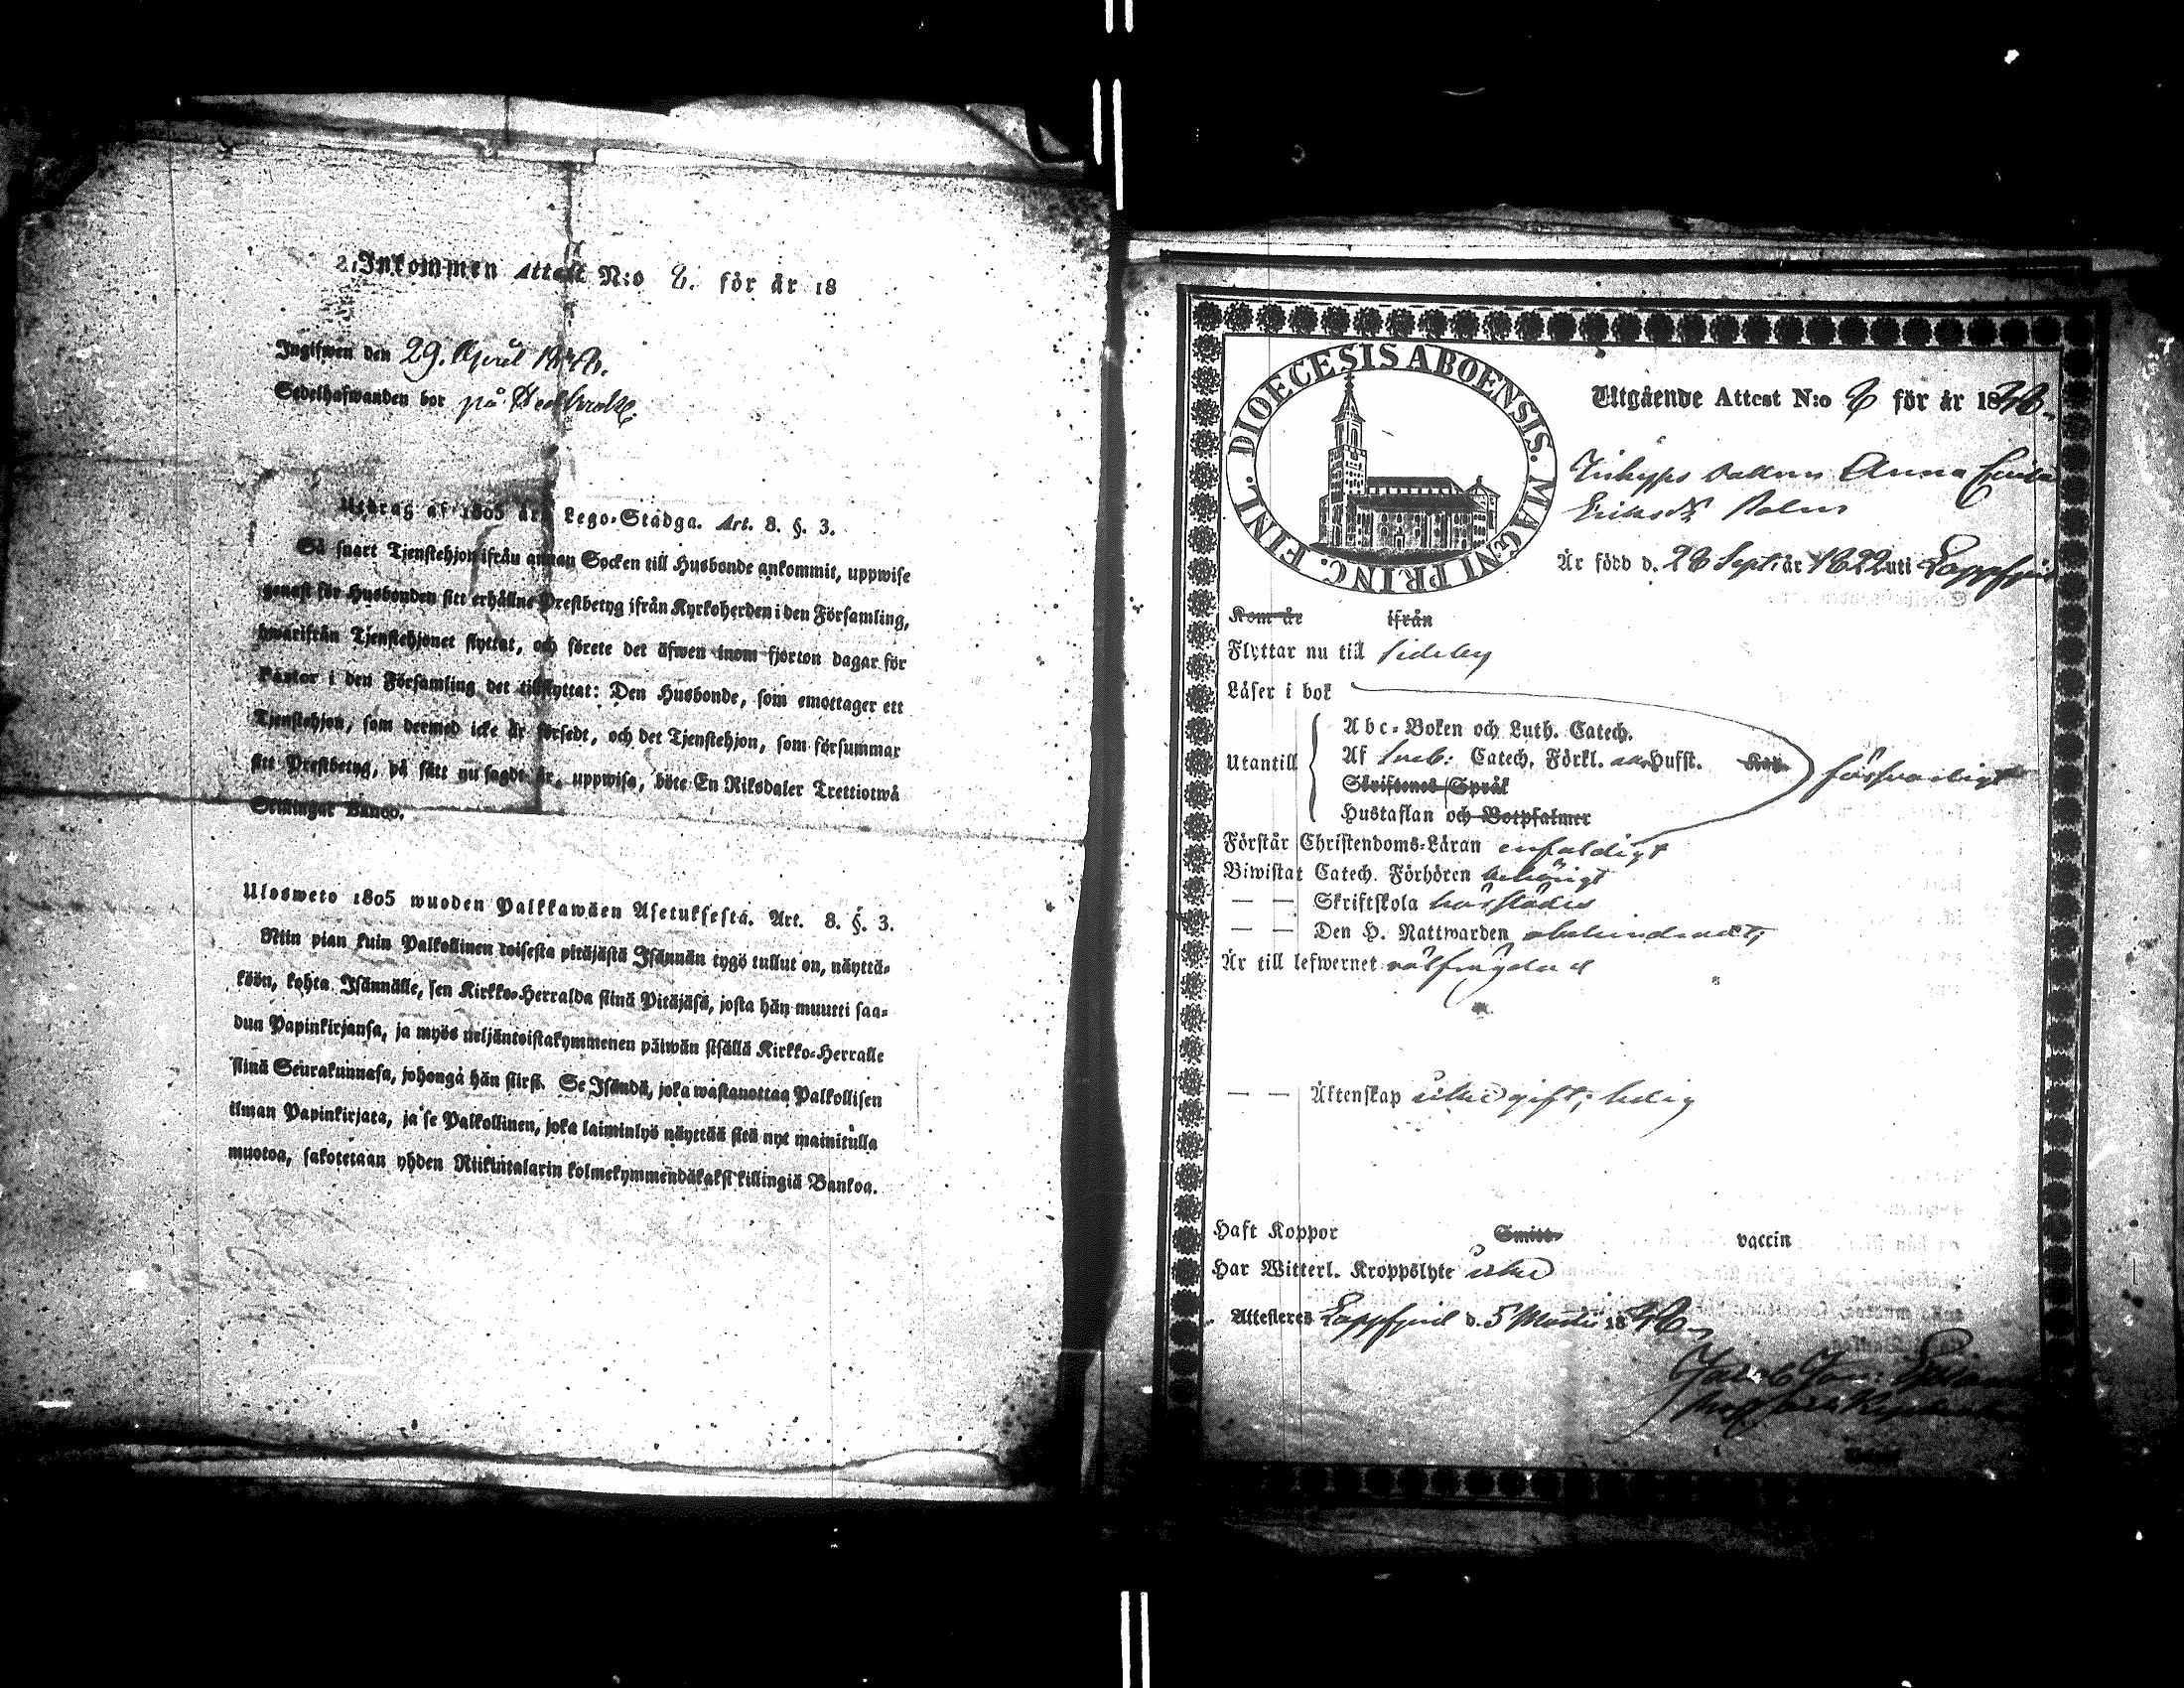 Inkommen Attest N:o 8. för år 18
Ingifwen den 29. April 1846.
Sedelhafwanden bor på
Utdrag af 1805 års Lego-Stadga. Art. 8. §. 3.
Så snart Tjenstehjon ifrån annan Socken till Husbonde ankommit, uppwise
genast för Husbonden sitt erhållne Prestbetyg ifrån Kyrkoherden i den Församling,
hwarifrån Tjenstehjonet flyttat, och förete det äfwen inom fjorton dagar för
Pastor i den Församling det tillflyttat: Den Husbonde, som emottager ett
Tjenstehjon, som dermed icke är försedt, och det Tjenstehjon, som försummar
sitt Prestbetyg, på sätt nu sagdt är, uppwisa, böte En Riksdaler Trettiotwå
Skillingar Banco.
Ulosweto 1805 wuoden Palkkawäen Asetuksesta. Art. 8. §. 3.
Niin pian kuin Palkollinen toisesta pitäjästä Isännän tygö tullut on, näyttä-
köön, kohta Isännälle, sen Kirkko-Herralda siinä Pitäjäsä, josta hän muutti saa-
dun Papinkirjansa, ja myös neljäntoistakymmenen päiwän sisällä Kirkko-Herralle
siinä Seurakunnasa, johonga hän siirsi. Se Isändä, joka wastanottaa Palkollisen
ilman Papinkirjata, ja se Palkollinen, joka laiminlyö näyttää sitä nyt mainitulla
muotoa, sakotetaan yhden Riikintalarin kolmekymmendäkaksi killingiä Bankoa.
DIOECESIS ABOENSIS. MAGNI PRINC. FINL.
Utgående Attest N:o 8 för år 1846.
Anna
Är född d. 28 Sept: år 1822 uti Lappfjerd
Kom år ifrån
Flyttar nu till Sideby
Läser i bok
Utantill
Abc-Boken och Luth. Catech.
Af Sveb: Catech. Förkl. Hufst. försvarligt
Skriftenes Språk
Hustaflan och Botpsalmer
Förstår Christendoms-Läran enfaldigt
Biwistat Catech. Förhören behörigt
— — Skriftskola härstädes
— — Den H. Nattwarden obehindradt
Är till lefwernet välfrägdad
— — Äktenskap icke gift; ledig
Haft Koppor Smitt- vaccin
Har Witterl. Kroppslyte icke
Attesteres Lappfjerd d. 5 Martii 1846.